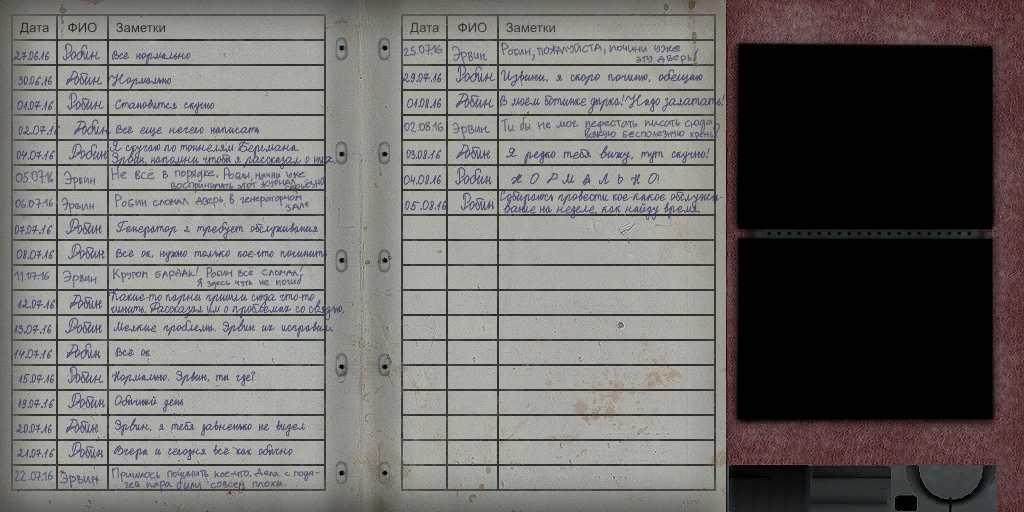 Дата ФИО Заметки
27.06.16 Робин Всё нормально
30.06.16 Робин Нормально
01.07.16 Робин Становится скучно
02.07.16 Робин Всё еще нечего написать
04.07.16 Робин Я скучаю по тоннелям Бергмана.
Эрвин, напомни чтоб я рассказал о них.
05.07.16 Эрвин Не всё в порядке. Робин, начни уже
воспринимать этот журнал серьезно
06.07.16 Эрвин Робин сломал дверь, в генераторном
зале
07.07.16 Робин Генератор я требует обслуживания
08.07.16 Робин Всё ок, нужно только кое-что починить
11.07.16 Эрвин Кругом бардак! Робин всё сломал!
Я здесь чуть не погиб
12.07.16 Робин Какие-то парни пришли сюда что-то
чинить. Рассказал им о проблемах со связью.
13.07.16 Робин Мелкие проблемы. Эрвин их исправил.
14.07.16 Робин Всё ок
15.07.16 Робин Нормально. Эрвин, ты где?
19.07.16 Робин Обычный день
20.07.16 Робин Эрвин, я тебя давненько не видел
21.07.16 Робин Вчера и сегодня всё как обычно
22.07.16 Эрвин Пришлось починить кое-что. Дела с пода-
чей пара были совсем плохи.
Дата ФИО Заметки
25.07.16 Эрвин Робин, пожалуйста, почини уже
эту дверь!
29.07.16 Робин Извини, я скоро починю, обещаю
01.08.16 Робин В моём ботинке дырка! Надо залатать!
02.08.16 Эрвин Ты бы не мог перестать писать сюда
всякую бесполезную хрень?
03.08.16 Робин Я редко тебя вижу, тут скучно!
04.08.16 Робин Н О Р М А Л Ь Н О!
05.08.16 Робин Собираюсь провести кое-какое обслужи-
вание на неделе, как найду время.